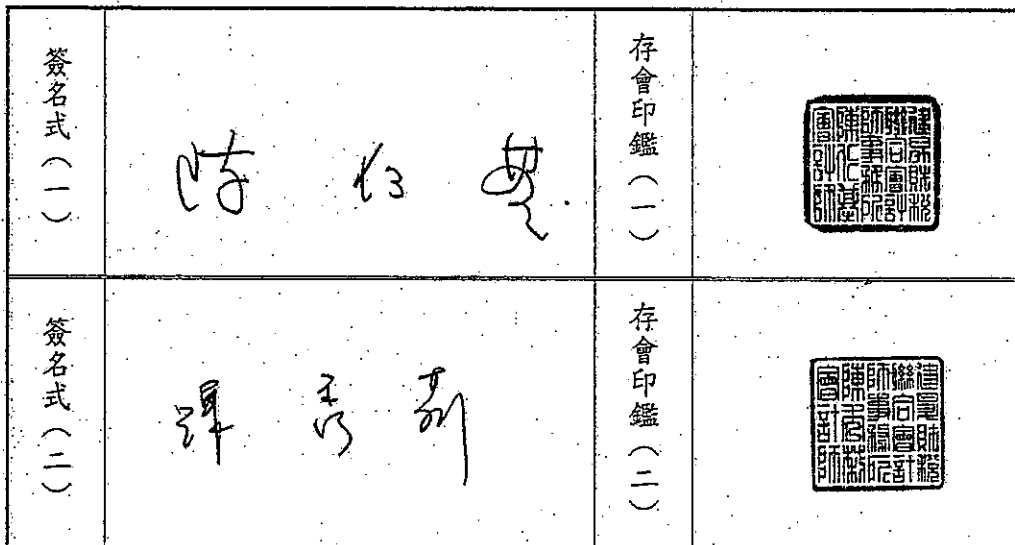 簽名式（一）
陳仁基
存會印鑑（一）
建昇財稅
聯合會計
師事務所
陳仁基
會計師
簽名式（二）
存會印鑑（二）
建昇財稅
聯合會計
師事務所
會計師